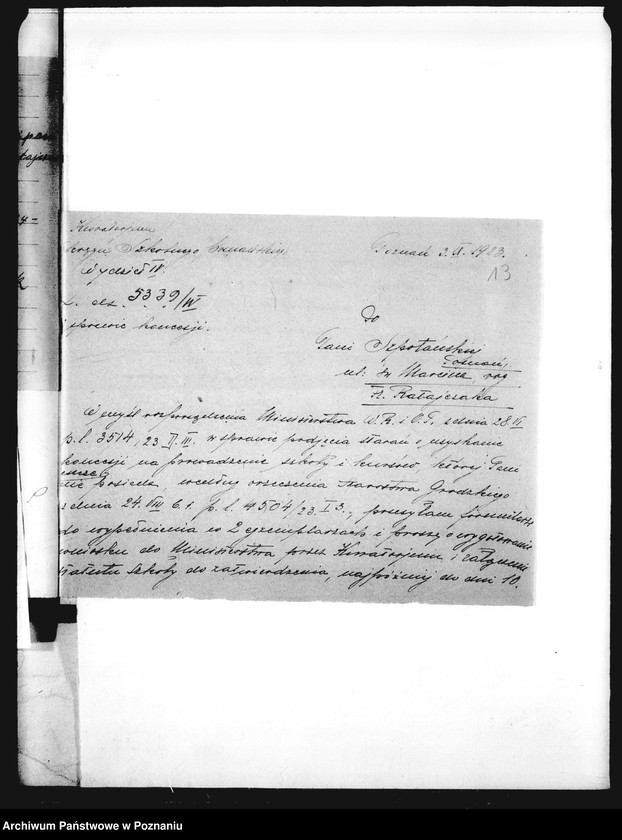 Kuratorjum
Szkolnego Poznańskiego
Wydział IV.
L. dz. 5339/IV
w sprawie koncesji.
Poznań 3. X. 1923.
13
Do
Pani Szpotańskiej
Poznań,
ul. Św. Marcina róg
Fr. Ratajczaka
W myśl rozporządzenia Ministerstwa W. R. i O. P. z dnia 28 IX
p. l. 3514/23 II. w sprawie podjęcia starań o uzyskanie
koncesji na prowadzenie szkoły i kursów, której Pani
nie posiada, według orzeczenia Starostwa Grodzkiego
z dnia 24. VIII b. r. p. l. 4504/23 I 3., przesyłam formularze
do wypełnienia w 2 egzemplarzach i proszę o wygotowanie
wniosku do Ministerstwa przez Kuratorjum i załączenie
statutu szkoły do zatwierdzenia, najpóźniej do dni 10.
Archiwum Państwowe w Poznaniu